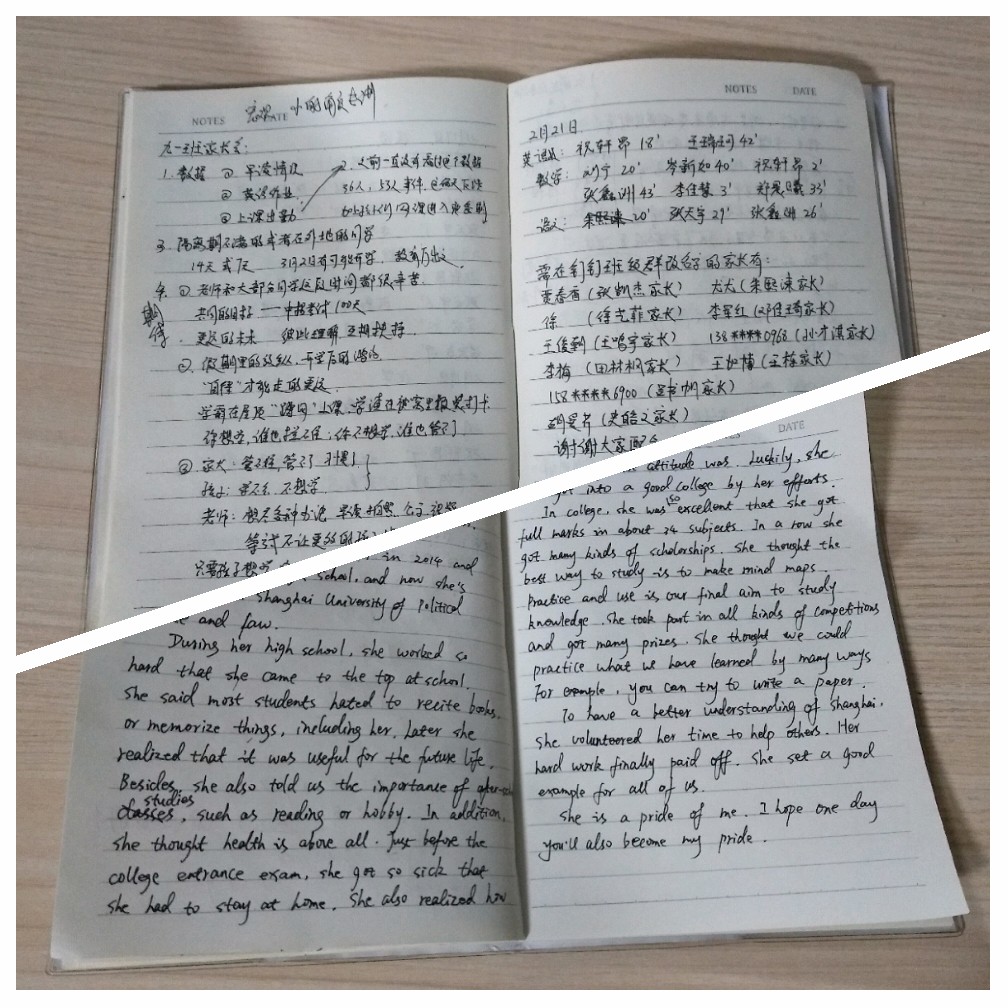 NOTES DATE
九一班家长会:
1. 数据 ① 早读情况
② 英语作业
③ 上课出勤
2. 之前一直没有看过这个数据
56人, 53人事件
3. 隔离期不满的或者在外地的同学
14天 或7天 3月2日有可能开学
4. ① 老师和大部分同学这段时间都很辛苦.
期待
共同的目标 — 中招考试100天
更远的未来 彼此理解 互相扶持.
② 假期里的放纵, 开学后的
"自律"才能走的更远
学霸在屋顶"蹭网"上课, 学渣在被窝里报哭打卡.
你想学, 谁也拦不住; 你不想学, 谁也管不了
③ 家长: 管不住, 管不了 习惯了
孩子: 学不会, 不想学
老师: 想尽各种办法
等
只要孩子想学
in 2014 and
school, and now she's
Shanghai University of Political
and Law.
During her high school, she worked so
hard that she came to the top at school.
She said most students hated to recite books
or memorize things, including her. Later she
realized that it was useful for the future life.
Besides, she also told us the importance of
studies
classes, such as reading or hobby. In addition,
she thought health is above all. Just before the
college entrance exam, she got so sick that
she had to stay at home. She also realized how
NOTES DATE
2月21日
英语: 祝轩昂 18' 王瑞珂 42'
数学: 刘宁 20' 岑新如 40' 祝轩昂 2'
张鑫洲 43' 李佳慧 3' 郑晨曦 35'
语文: 朱熙涑 20' 张天宇 29' 张鑫洲 26'
需在钉钉班级群改名字的家长有:
贾春香 (张凯杰家长) 尤尤 (朱熙涑家长)
徐 (徐克菲家长) 李军红 (邓佳琦家长)
王俊剑 (王鸣宇家长) 138****0968 (孙才淇家长)
李梅 (田林枫家长) 王如梅 (王栋家长)
158****6900 (家长)
胡曼君 (史皓之家长)
谢谢大家配合
NOTES DATE
attitude was. Luckily, she
got into a good college by her efforts.
In college, she was so excellent that she got
full marks in about 24 subjects. In a row she
got many kinds of scholorships. She thought the
best way to study is to make mind maps.
Practice and use is our final aim to study
knowledge. She took part in all kinds of competitions
and got many prizes. She thought we could
practice what we have learned by many ways
For example, you can try to write a paper.
To have a better understanding of Shanghai,
she volunteered her time to help others. Her
hard work finally paid off. She set a good
example for all of us.
She is a pride of me. I hope one day
you'll also become my pride.